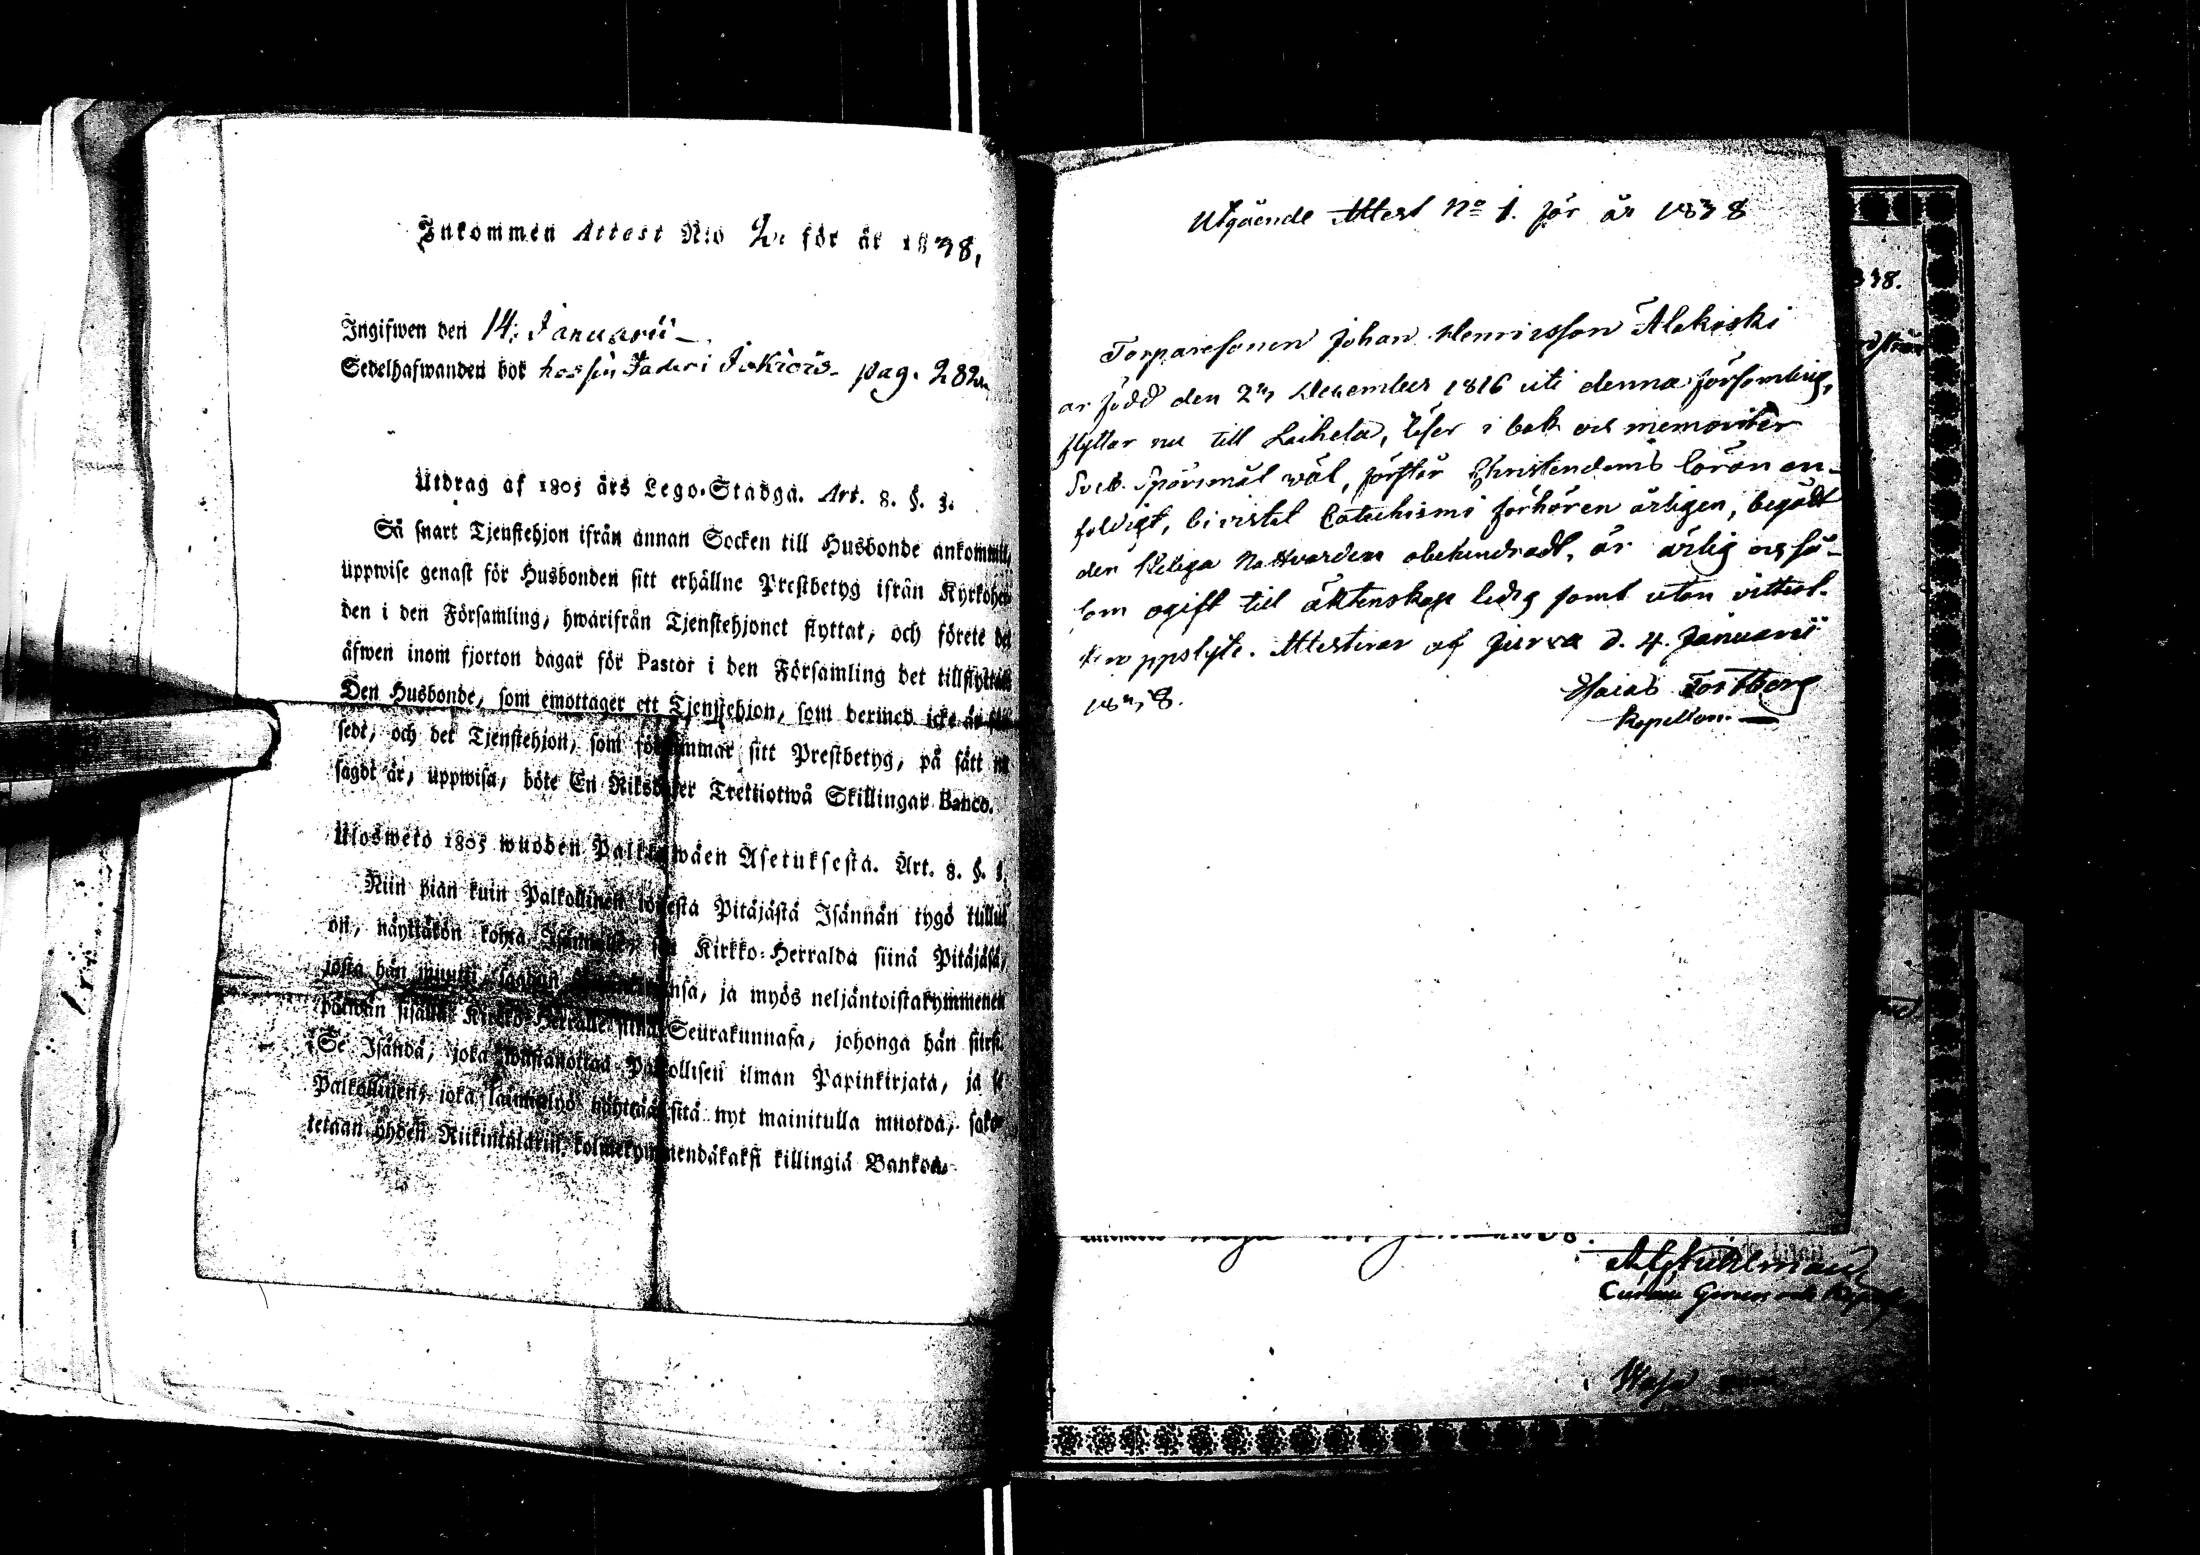 Inkommen Attest N:o 2. för år 1838.
Ingifwen den 14: Januarii
Sedelhafwanden bor hos sin Fader i Jokiois. pag. 282.
Utdrag af 1805 års Lego-Stadga. Art. 8. §. 3.
Så snart Tjenstehjon ifrån annan Socken till Husbonde ankommit,
uppwise genast för Husbonden sitt erhållne Prestbetyg ifrån Kyrkoher-
den i den Församling, hwarifrån Tjenstehjonet flyttat, och förete det
äfwen inom fjorton dagar för Pastor i den Församling det tillflyttat.
Den Husbonde, som emottager ett Tjenstehjon, som dermed icke är för-
sedt, och det Tjenstehjon, som försummar sitt Prestbetyg, på sätt nu
sagdt är, uppwisa, böte En Riksdaler Trettiotwå Skillingar Banco.
Ulosweto 1805 wuoden Palkkawäen Asetuksesta. Art. 8. §. 3.
Niin pian kuin Palkollinen toisesta Pitäjästä Isännän tygö tullut
on, näyttäkön kohta Isännälle, sen Kirkko-Herralda siinä Pitäjäsä,
josta hän muutti, saadun nsa, ja myös neljäntoistakymmenen
päiwän sisällä Kirkko-Herralle siinä Seurakunnasa, johonga hän siirsi.
Se Isändä, joka wastanottaa Palkollisen ilman Papinkirjata, ja se
Palkollinen, joka laiminlyö näyttää sitä nyt mainitulla muotoa, sako-
tetaan yhden Riikintalarin kolmekymmendäkaksi killingiä Bankoa.
Utgående Attest No 1. för år 1838
Torparesonen Johan Henricsson Alakoski
är född den 27 December 1816 uti denna församling,
flyttar nu till Laihela, läser i bok och memoriter
Sveb. Spörsmål wäl, förstår Christendoms läran en-
faldigt, bivistat Catechismi förhören årligen, begådt
den Heliga Nattvarden obehindradt, är ärlig och så-
som ogift till äktenskap ledig samt utan vitterl.
Attesterar af Jurva d. 4. Januarii
1838.
Esaias Forsberg
Kapellan.
338.
Wasa